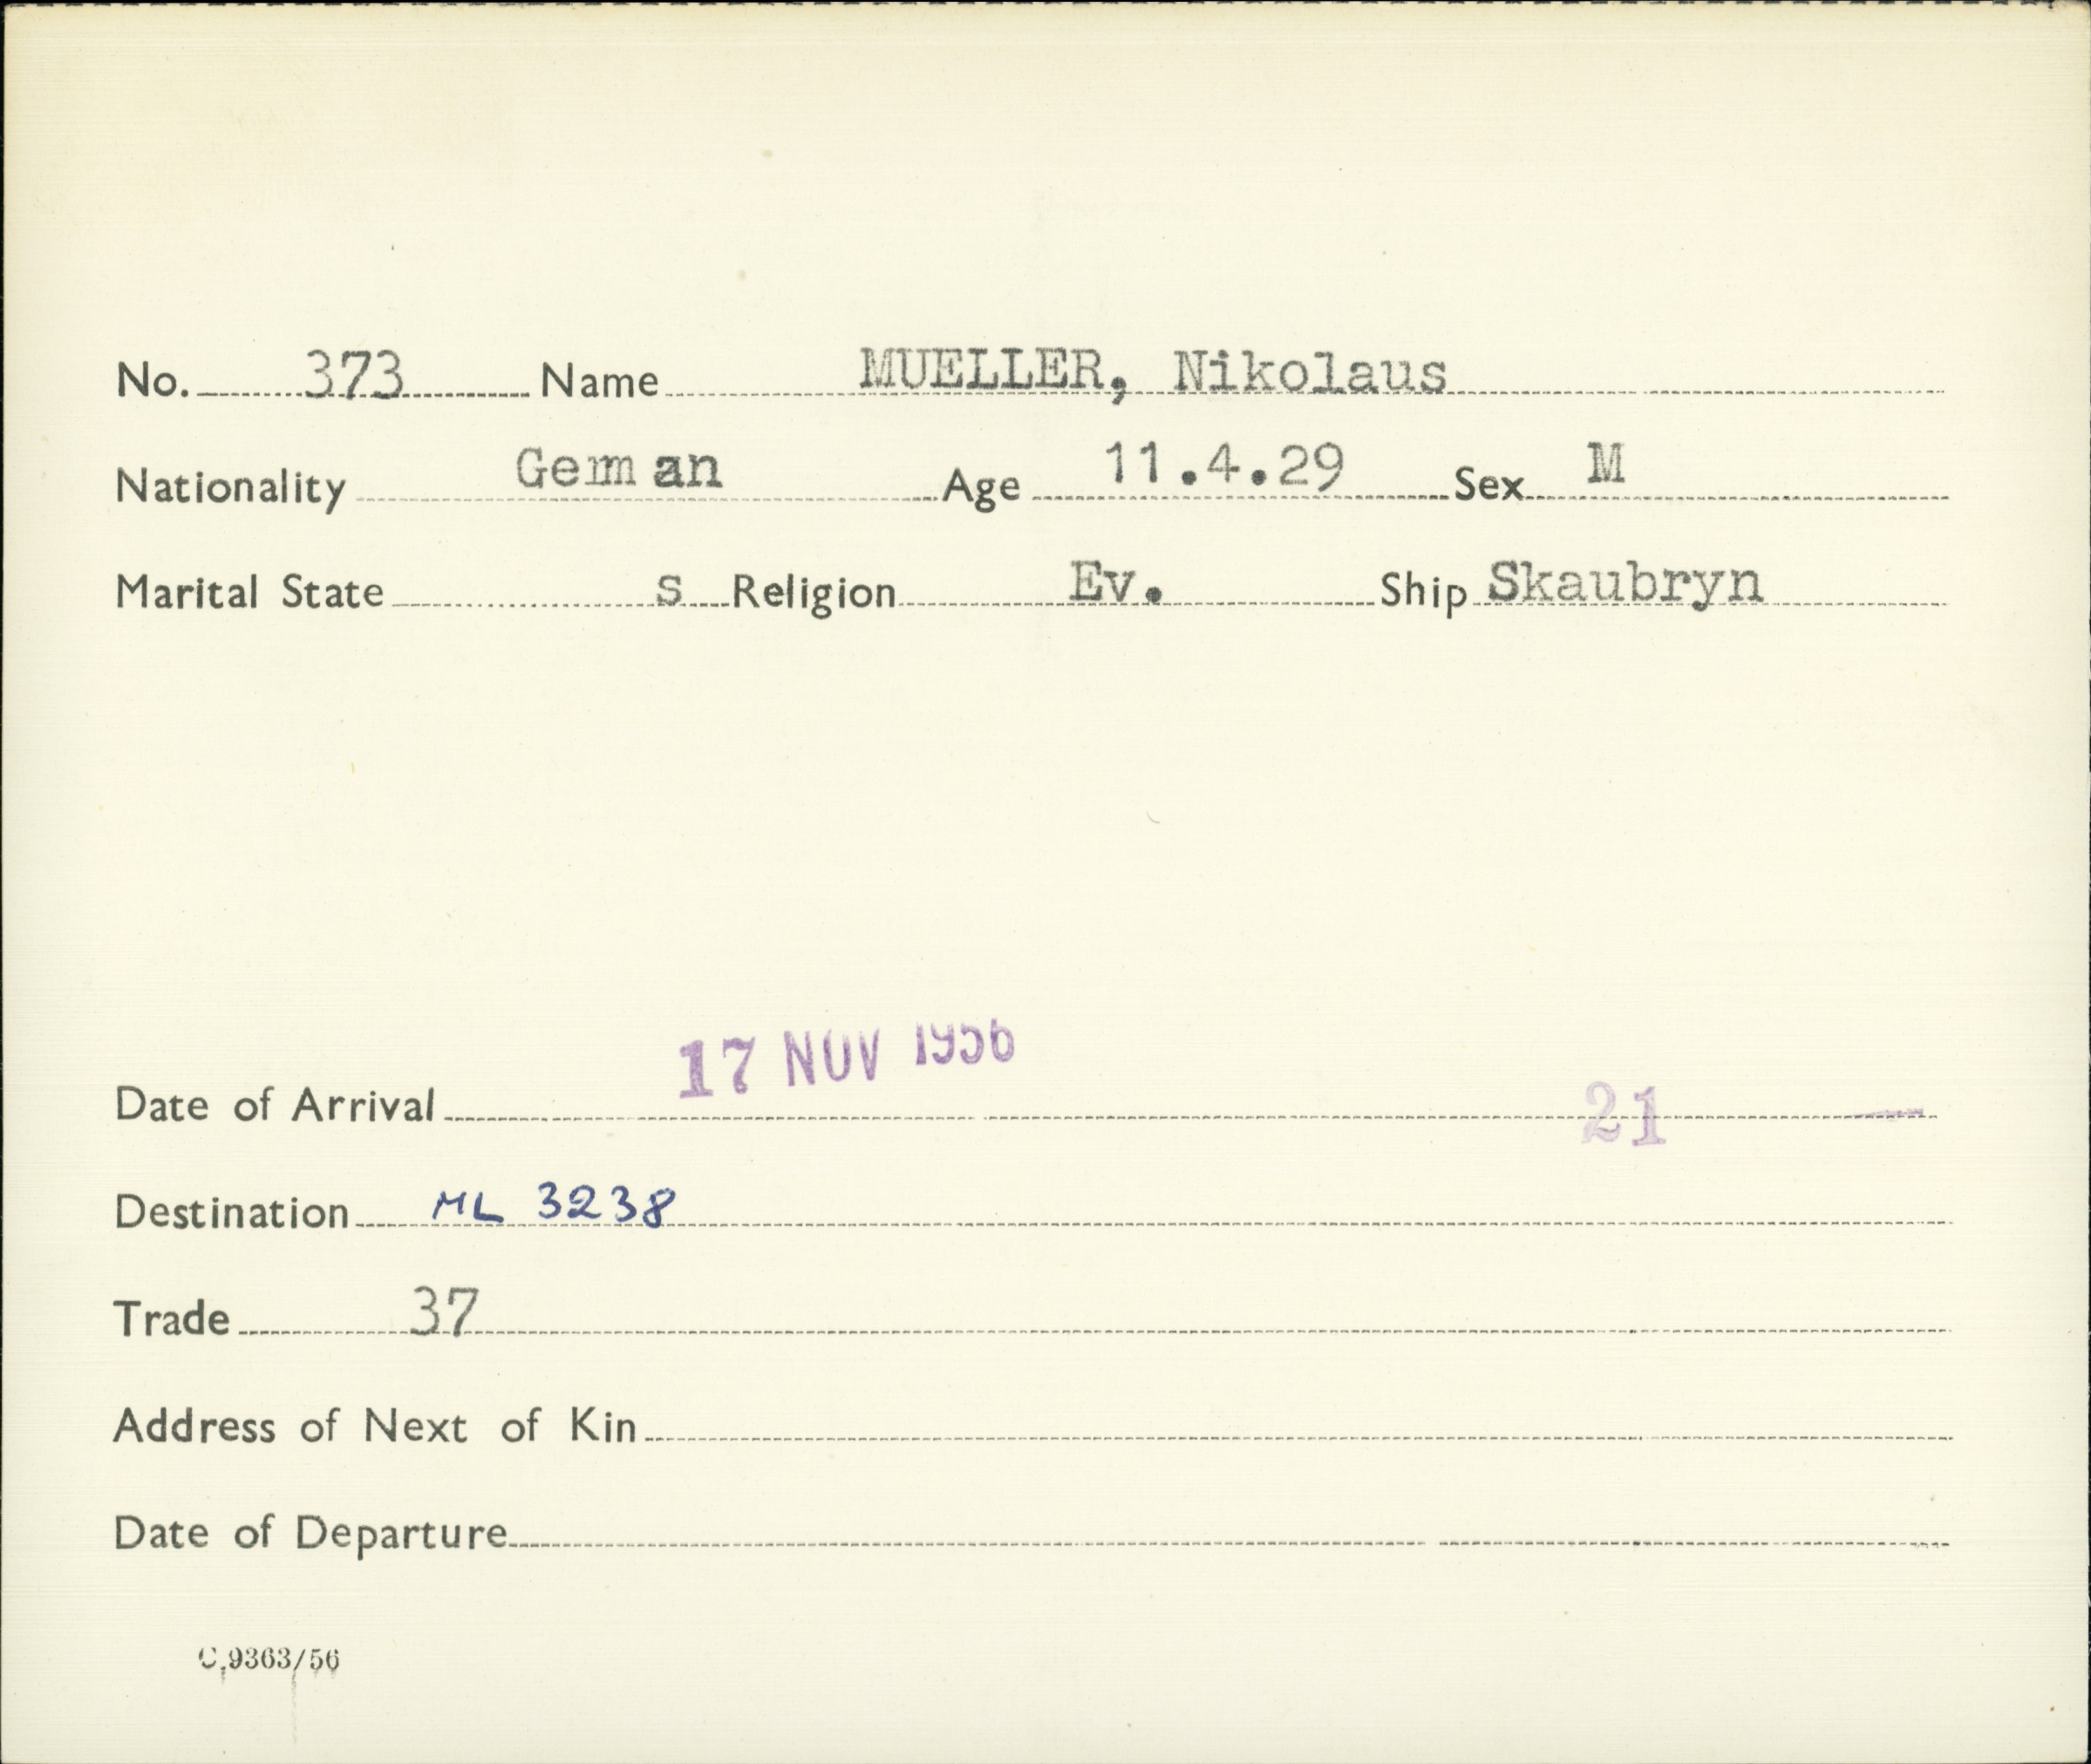 No. 373 Name MUELLER, Nikolaus
Nationality German Age 11.4.29 Sex M
Marital State s Religion Ev. Ship Skaubryn
Date of Arrival 17 NOV 1956 21
Destination ML 3238
Trade 37
Address of Next of Kin
Date of Departure
C.9363/56